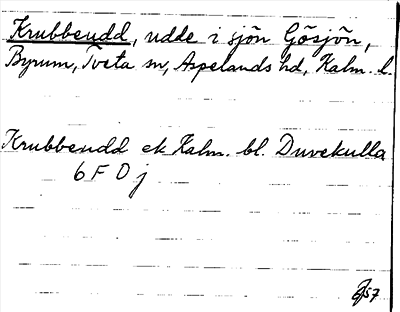 Krubbeudd, udde i sjön Gösjön,
Byrum, Tveta sn, Aspelands hd, Kalm. l.
Krubbeudd ek Kalm. bl. Duvekulla
6 F 0 j
57